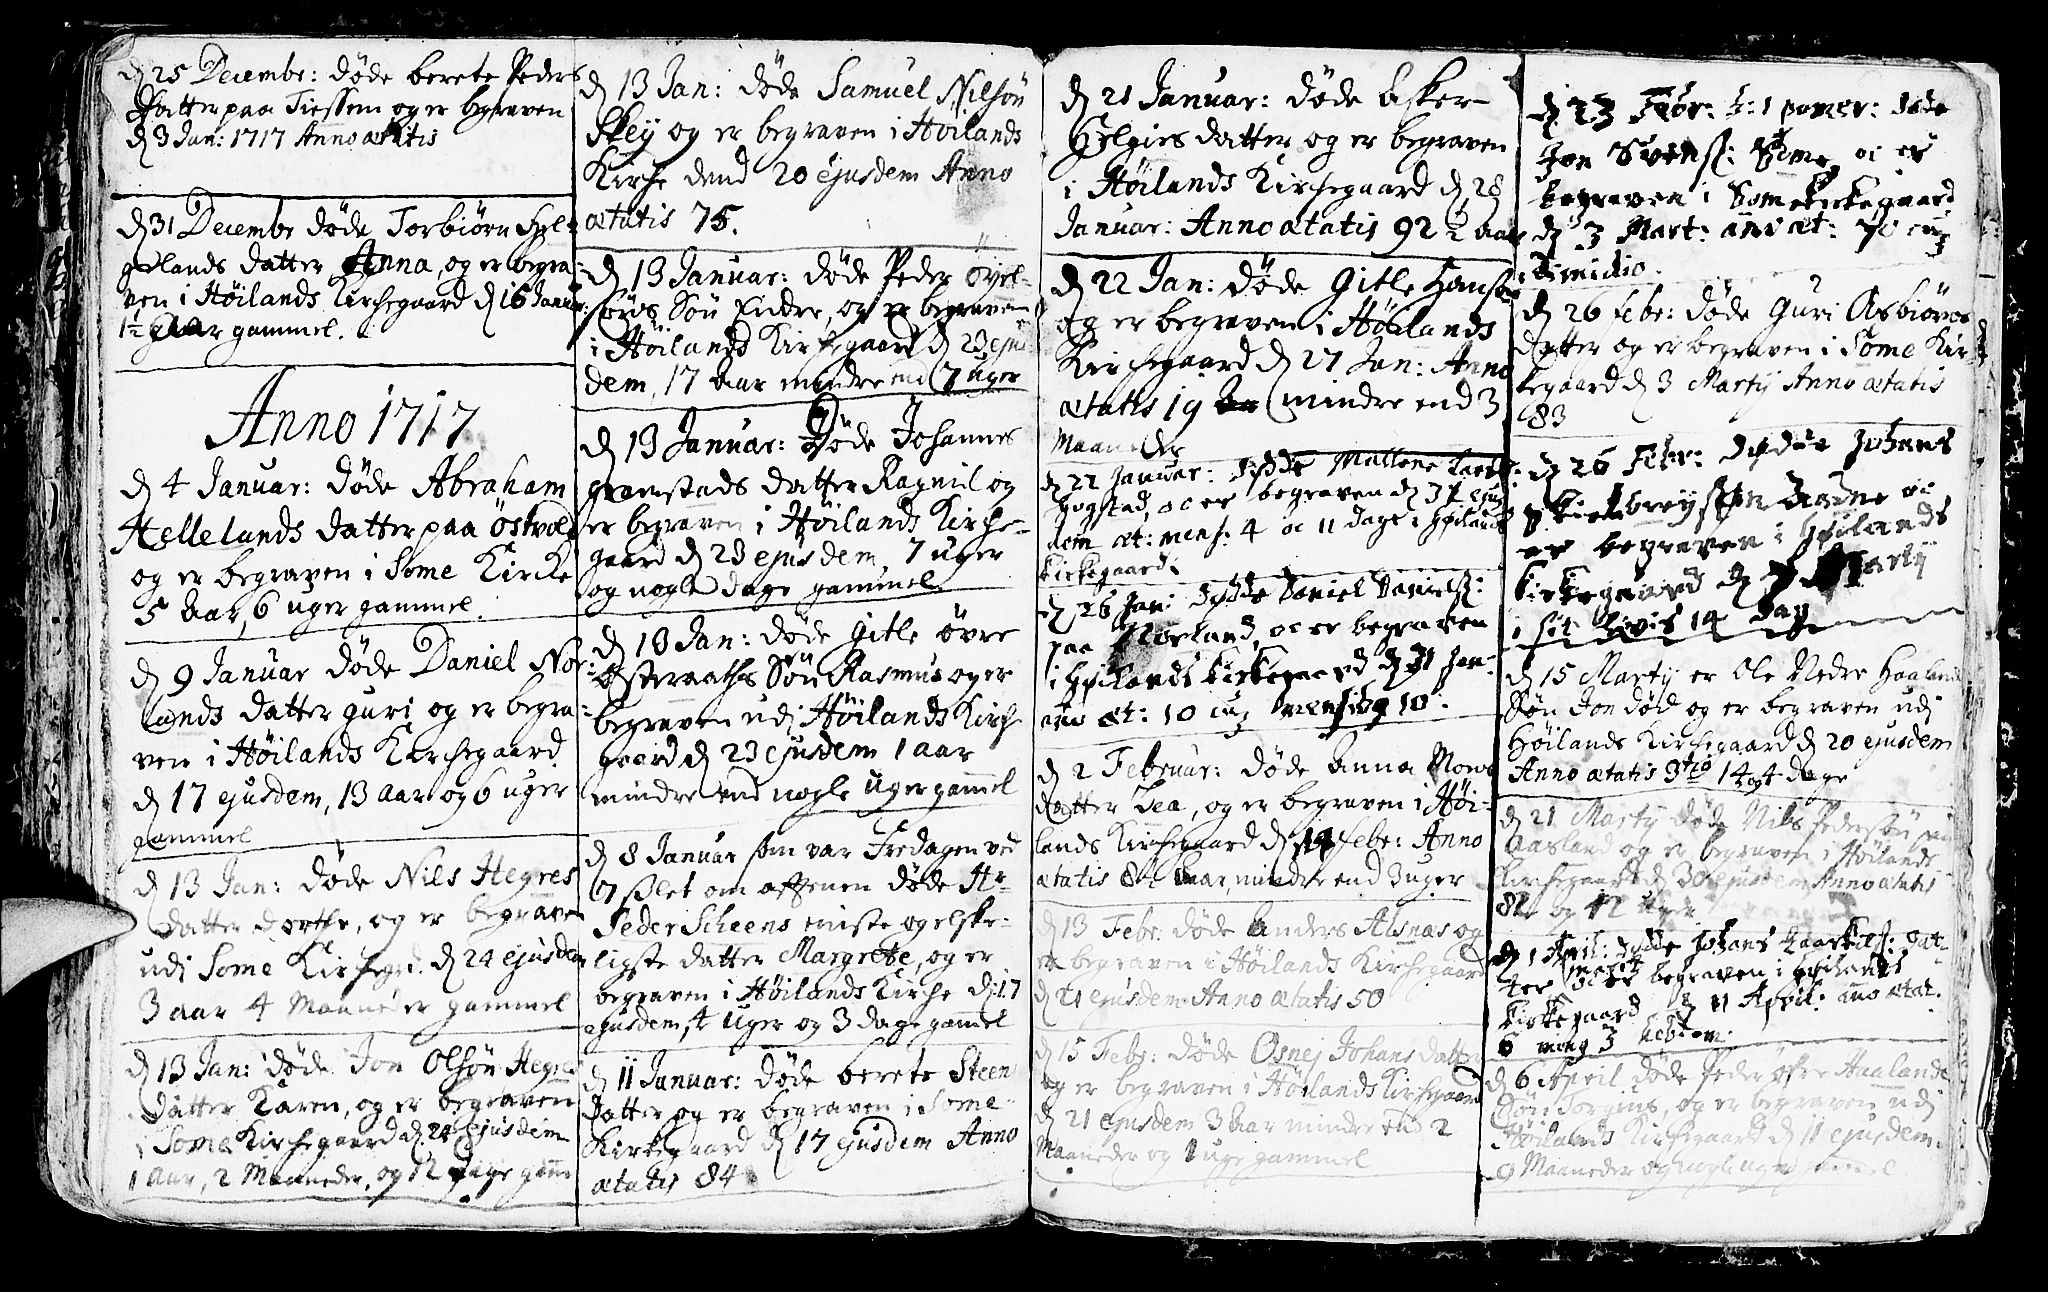 d 25 Decembr: døde berete Peders
Datter paa Tiessem og er begraven
d 3 Jan: 1717 Anno ætatis
d 31 Decembr døde Torbiørn Hel-
gelands datter Anna, og er begra-
ven i Høilands Kirchegaard d 16 Janua
1½ Aar gammel.
Anno 1717
d 4 Januar: døde Abraham
Hellelands datter paa Østvold
og er begraven i Some Kirke
5 Aar, 6 uger gammel.
d 9 Januar døde Daniel Nor-
lunds datter guri og er begra-
ven i Høilands Kirchegaard
d 17 ejusdem, 13 aar og 6 uger
gammel
d 13 Jan: døde Nils Hegres
datter dorthe, og er begraven
udi Some Kirchegrd. d 24 ejusdem
3 aar 4 Maaneder gammel
d 13 Jan: døde Jon Olsøn Hegres
datter Karen, og er begraven
i Some Kirchegaard d. 24 ejusdem
1 aar, 2 Maaneder, og 12 dage gam̅
d 13 Jan: døde Samuel Nilsøn
Skey og er begraven i Høilands
Kirche dend 20 ejusdem Anno
ætatis 75.
d 13 Januar: døde Peder
Søn Endre, og er begraven
i Høilands Kirchegaard d 23 ejus
dem, 17 Aar mindre end 7 uger
d 13 Januar: Døde Johannes
gramstads datter Ragnil og
er begraven i Høilands Kirche-
gaard d 23 ejusdem, 7 uger
og nogle dage gammel
d 18 Jan: døde Gitle øvre
Osteraaths Søn Rasmus og er
begraven udi Høilands Kirche
gaard d 23 ejusdem 1 aar
mindre end nogle Uger gam̅el
d 8 Januar som var Fredagen ved
7 slet om afftenen døde Hr
Peder Scheens eniste og elske-
ligste datter Margrete, og er
begraven i Høilands Kirche d: 17
ejusdem, 4 Uger og 3 dage gam̅el
d 11 Januar: døde berete Steens
datter og er begraven i Some
Kirkegaard d 17 ejusdem Anno
ætatis 84
d 21 Januar: døde Asker
Helgies datter og er begraven
i Høilands Kirchegaard d 28
Januar: Anno ætatis 92½ aar
d 22 Jan: døde Gitle Hansøn
og er begraven i Høilands
Kirchegaard d 27 Jan: Anno
ætatis 19 mindre end 3
Maaneder
d 22 Januar: døde Mallene
Hogstad, oc er begraven d 31 ejus
dem æt: mens: 4 oc 11 dage i Høilands
Kirkegaard.
d 26 Jan: døde Daniel Daniels:
paa Norland, oc er begraven
i Høilands Kirkegaard d 31 Jan:
ano æt: 10 cu̅ mensibg 10.
d 2 Februar: døde Anna
datter Lea, og er begraven i Høi-
lands Kirchegaard d 14 febr: Anno
ætatis Aar, mindre end 3 uger
d 13 Febr. døde Anders Alsnæs og
er begraven i Høilands Kirchegaard
d 21 ejusdem Anno ætatis 50
d 15 Febr: døde Osnej Johans datter
og er begraven i Høilands Kirchegaard
d 21 ejusdem 3 Aar mindre end 2
Maaneder og 1 uge gammel
d 23 døde
Jon Svens: Some oc er
begraven i Some Kirkegaard
d 3 Mart: ano æt: 70 cu̅
dimidio.
d 26 febr: døde Guri Asbiørns
datter og er begraven i Some Kir-
kegaard d 3 Martij Anno ætatis
83
d 26 Febr: døde Johans
oc
er begraven i Høilands
Kirkegaard d 7 Martij
14 Dag
d 15 Martij er Ole Nedre Haalands
Søn Jon død og er begraven udi
Høilands Kirchegaard d 20 ejusdem
Anno ætatis 3tio 14 dage
d 21 Martij døde Nils Pedersøn
Aasland og er begraven i Høilands
Kirchegaard d 30 ejusdem Anno ætatis
82 og 12 Uger
d 1 April: døde Johans dat-
ter oc er begraven i Høilands
Kirkegaard d 11 April: ano ætat.
6 minq 3 hebdom:
d 6 April døde Peder øfre Haalands
Søn Torgius, og er begraven udi
Høilands Kirchegaard d 11 ejusdem
9 Maaneder og nogle uger gammel